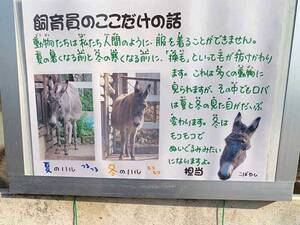 飼育員のここだけの話
動物たちは私たち人間のように、服を着ることができません。
夏の暑くなる前と冬の寒くなる前に、「換毛」といって毛が抜けかわり
ます。これは多くの動物に
見られますが、その中でもロバ
は夏と冬の見た目がだいぶ
変わります。冬は
モコモコで
ぬいぐるみみたい
になりますよ。
夏のハル つるつる
冬のハル もこもこ
担当 こばやし